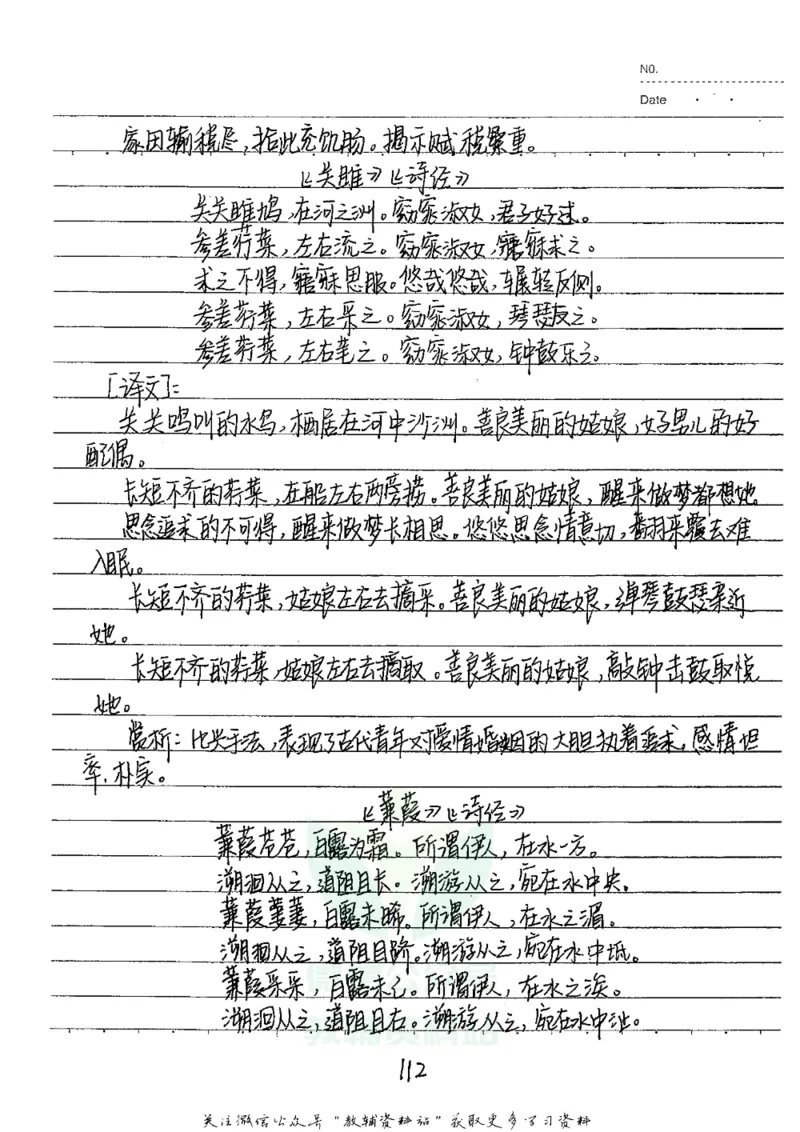 NO.
Date
家田输税尽,拾此充饥肠。揭示赋税繁重。
《关雎》《诗经》
关关雎鸠,在河之洲。窈窕淑女,君子好逑。
参差荇菜,左右流之。窈窕淑女,寤寐求之。
求之不得,寤寐思服。悠哉悠哉,辗转反侧。
参差荇菜,左右采之。窈窕淑女,琴瑟友之。
参差荇菜,左右芼之。窈窕淑女,钟鼓乐之。
[译文]:
关关鸣叫的水鸟,栖居在河中沙洲。善良美丽的姑娘,好男儿的好
配偶。
长短不齐的荇菜,在船左右两旁捞。善良美丽的姑娘,醒来做梦都想她
思念追求的不可得,醒来做梦长相思。悠悠思念情意切,翻来覆去难
入眠。
长短不齐的荇菜,姑娘左右去摘采。善良美丽的姑娘,弹琴鼓瑟亲近
她。
长短不齐的荇菜,姑娘左右去摘取。善良美丽的姑娘,敲钟击鼓取悦
她。
赏析:比兴手法,表现了古代青年对爱情婚姻的大胆执着追求,感情坦
率,朴实。
《蒹葭》《诗经》
蒹葭苍苍,白露为霜。所谓伊人,在水一方。
溯洄从之,道阻且长。溯游从之,宛在水中央。
蒹葭萋萋,白露未晞。所谓伊人,在水之湄。
溯洄从之,道阻且跻。溯游从之,宛在水中坻。
蒹葭采采,白露未已。所谓伊人,在水之涘。
溯洄从之,道阻且右。溯游从之,宛在水中沚。
112
关注微信公众号"教辅资料站"获取更多学习资料